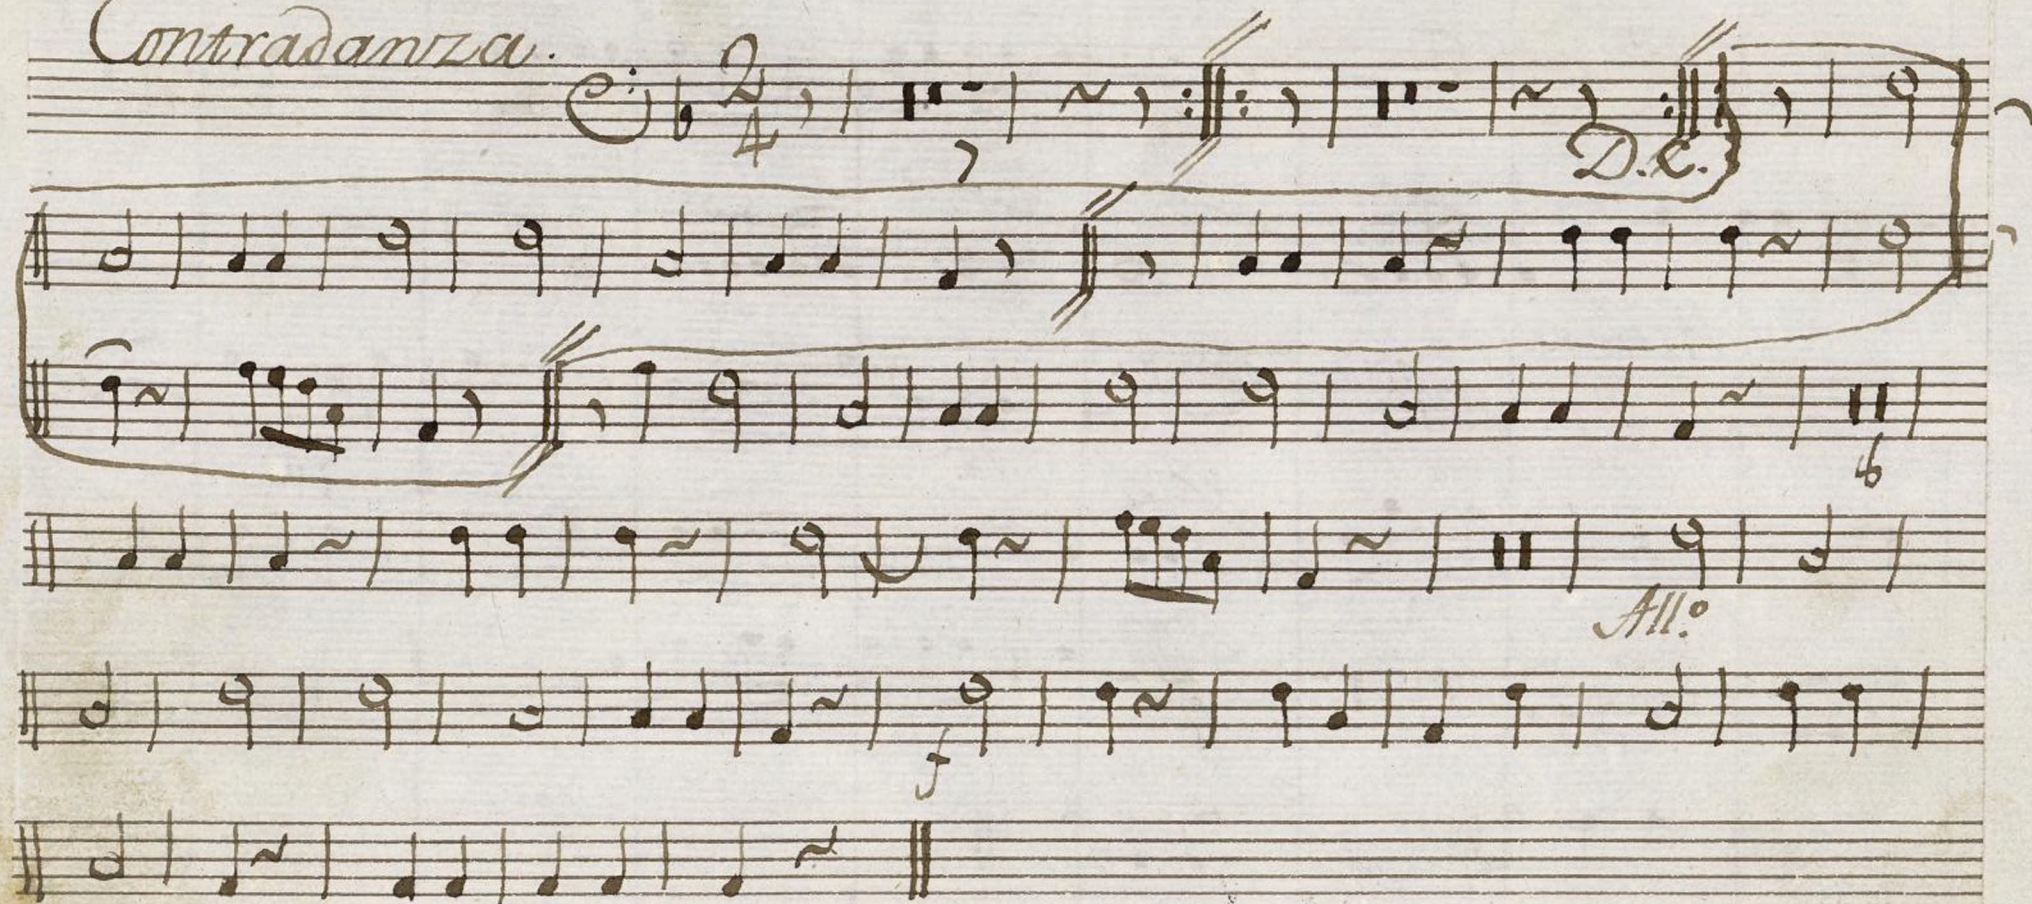 Contradanza.
2
4
7
D.C.
6
All:o
f